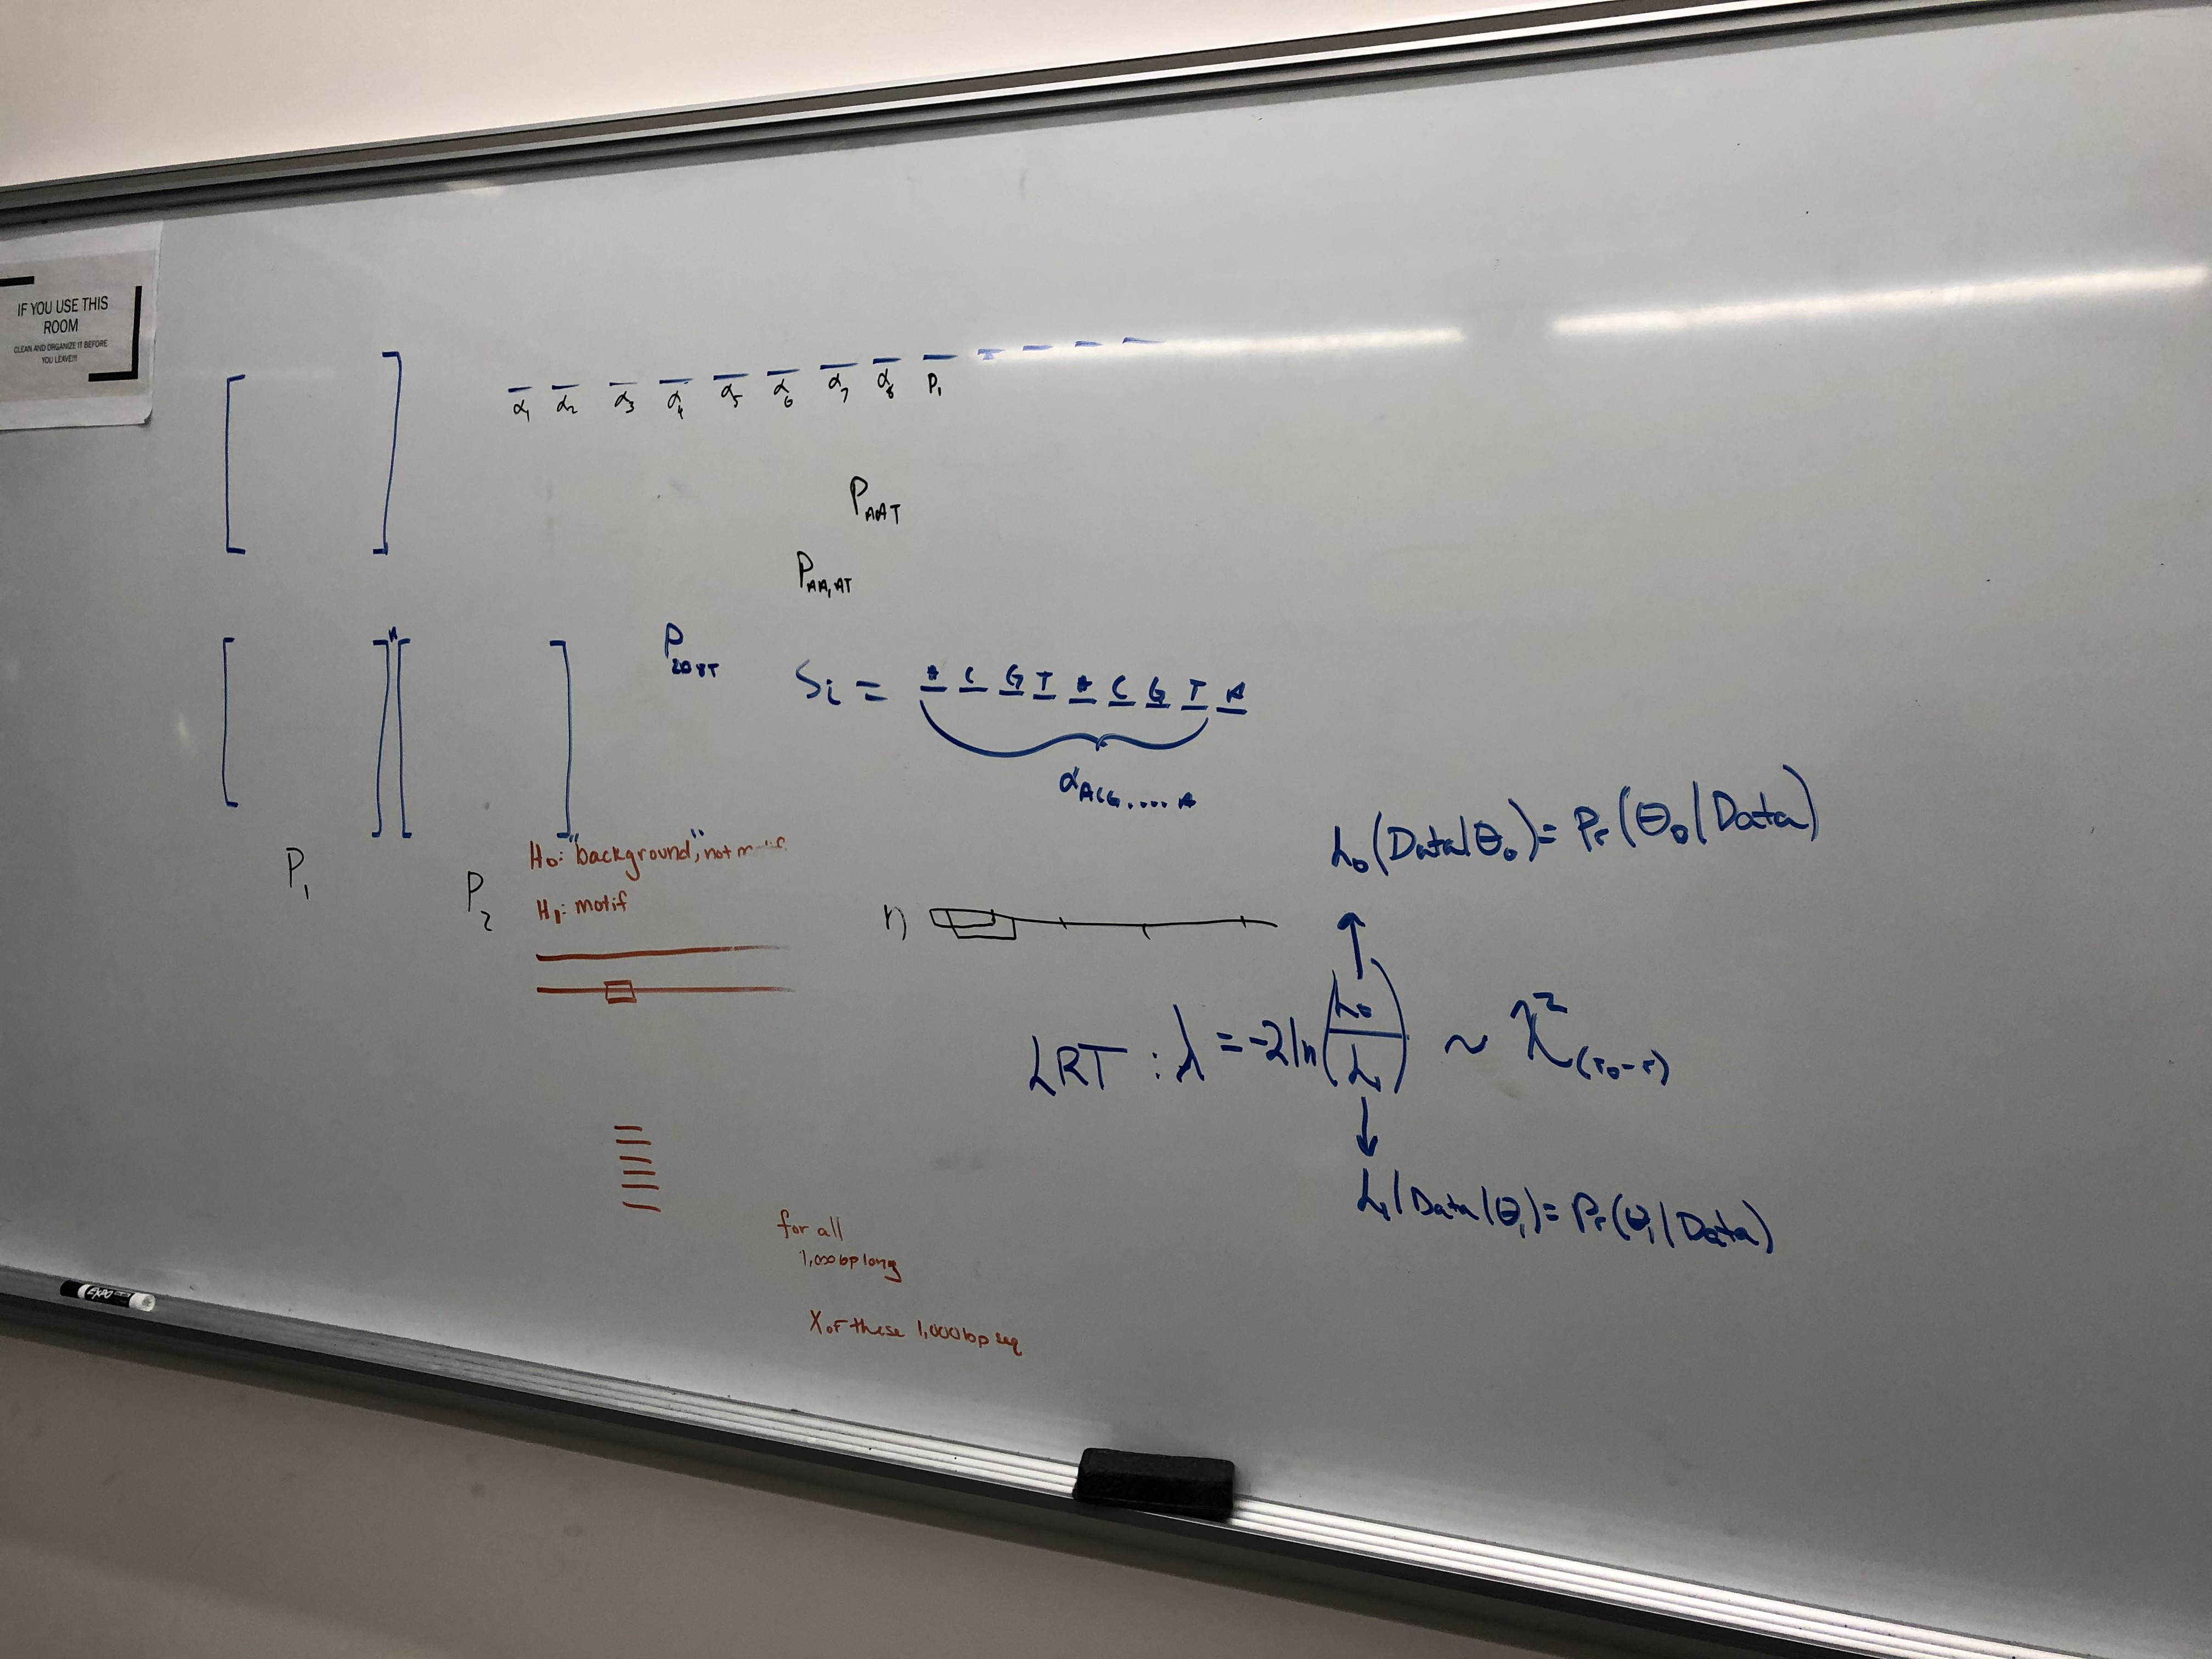 IF YOU USE THIS
ROOM
CLEAN AND ORGANIZE IT BEFORE
YOU LEAVE!!!
α₁ α₂ α₃ α₄ α₅ α₆ α₇ α₈ P₁
P_AAT
P_AA,AT
Sᵢ = A C G T A C G T A
α_ACG.....A
P₁
P₂
H₀: "background", not
H₁: motif
L₀(Data|θ₀) = Pr(θ₀|Data)
LRT : λ = -2ln(L₀/L₁) ~ χ²
L₁(Data|θ₁) = Pr(θ₁|Data)
for all
1,000bp long
X of these 1,000bp seq
EXPO